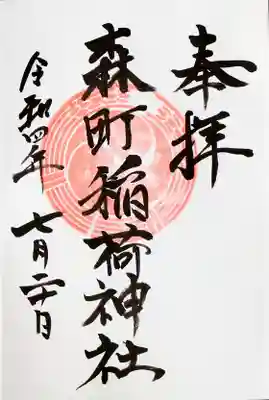 奉拝
森町稲荷神社
令和四年 七月二十日